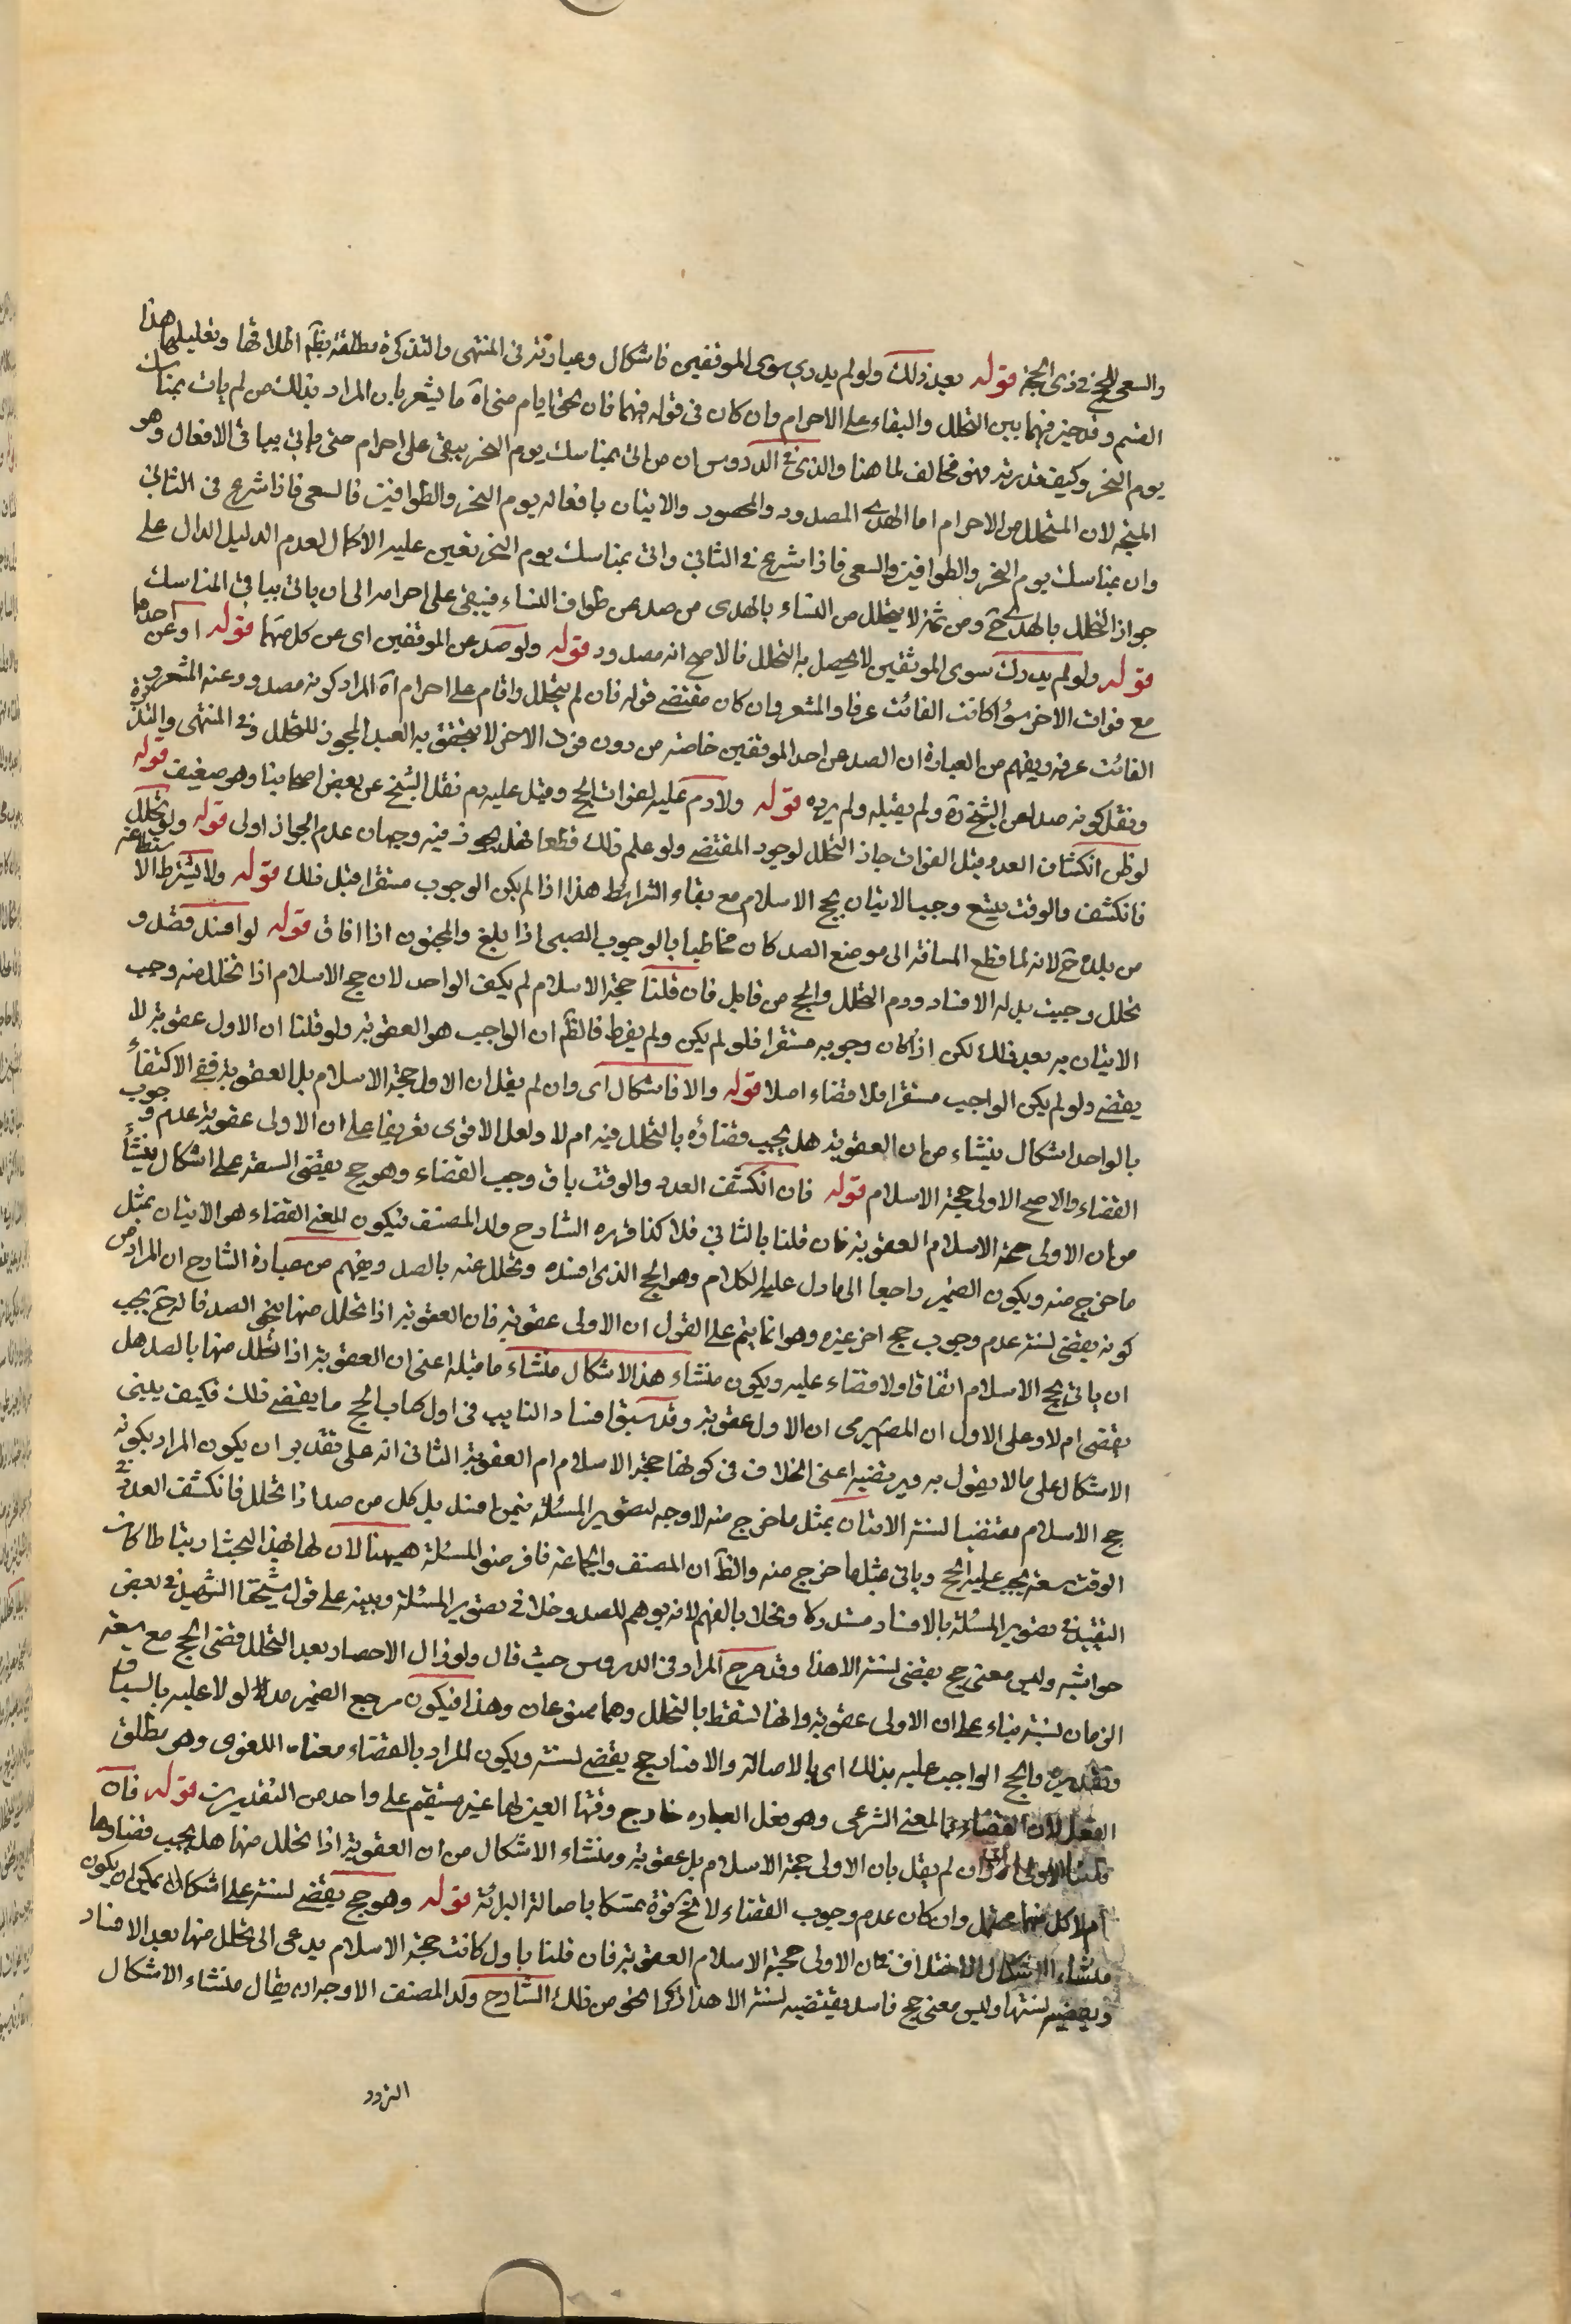 والسعى للحج فى ذى الحجة قوله بعد ذلك ولو لم يدرك سوى الموقفين فاشكال وعبارته فى المنتهى والتذكرة مطلقة بظم اطلاقها وتعليلها هذا
القسم وقد خير فيهما بين التحلل والبقاء على الاحرام وان كان فى قوله فيهما فان لحق ايام منى اه ما يشعر بان المراد بذلك من لم يات بمناسك
يوم النحر وكيف قدرته فهو مخالف لما هنا والذى فى الدروس ان من اتى بمناسك يوم النحر يبقى على احرام حتى ياتى بباقى الافعال وهو
المتجه لان المتحلل من الاحرام اما الهدى المصدود والمحصور والاتيان بافعاله يوم النحر والطوافين فالسعى فاذا شرع فى الثانى
وان بمناسك يوم النحر والطوافين والسعى فاذا شرع فى الثانى واتى بمناسك يوم النحر تعين عليه الاكمال لعدم الدليل الدال على
جواز التحلل بالهدى ح ومن ثم لا يتحلل من النساء بالهدى من صد عن طواف النساء فيبقى على احرامه الى ان ياتى بباقى المناسك
قوله ولو لم يدرك سوى الموقفين لا يحصل به التحلل فالاصح انه مصدود قوله ولو صد عن الموقفين اى عن كل منهما قوله او عن احدهما
مع فوات الاخر سواء كانت الفائت عرفا والمشعر وان كان مقتضى قوله فان لم يتحلل واقام على احرام اه المراد كونه مصدود عنه المشعر و
الفائت عرفه ويفهم من العبارة ان الصد عن احد الموقفين خاصه من دون فوات الاخر لا يتحقق به الصد المجوز للتحلل وفى المنتهى والتذكرة
ونقل كونه صدا عن الشيخ ره ولم يقبله ولم يرده قوله ولا دم عليه لفوات الحج وقيل عليه دم نقل الشيخ عن بعض اصحابنا وهو ضعيف قوله
لو ظن انكشاف العدو قبل الفوات جاز التحلل لوجود المقتضى ولو علم ذلك قطعا فهل يجوز فيه وجهان عدم الجواز اولى قوله ولو تحلل
فانكشف والوقت يتسع وجب الاتيان بحج الاسلام مع بقاء الشرائط هذا اذا لم يكن الوجوب مستقرا قبل ذلك قوله ولا يشترط الاستطاعة
من بلده ح لانه لما قطع المسافة الى موضع الصد كان مخاطبا بالوجوب الصبى اذا بلغ والمجنون اذا افاق قوله لو افسد فصد و
تحلل وجبت بدله الافساد ودم التحلل والحج من قابل فان قلنا حجة الاسلام لم يكف الواحد لان حج الاسلام اذا تحلل منه وجب
الاتيان به بعد ذلك لكن اذا كان وجوبه مستقرا فلو لم يكن ولم يفرط فالظم ان الواجب هو العقوبة ولو قلنا ان الاول عقوبة لا
يقضى ولو لم يكن الواجب مستقرا فلا قضاء اصلا قوله والا فاشكال اى وان لم يقل ان الاولى حجة الاسلام بل العقوبة ففى الاكتفاء
بالواحد اشكال ينشاء من ان العقوبة هل يجب قضاؤه بالتحلل فيه ام لا ولعل الاقوى تفريعا على ان الاولى عقوبة عدم وجوب
القضاء والاصح الاولى حجة الاسلام قوله فان انكشف العدو والوقت باق وجب القضاء وهو حج يقضى السنة على اشكال ينشأ
من ان الاولى حجة الاسلام العقوبة فان قلنا بالثانى فلا كذا قرره الشارح ولد المصنف فيكون للمعنى القضاء هو الاتيان بمثل
ما خرج منه ويكون الضمير راجعا الى ما دل عليه الكلام وهو الحج الذى افسده وتحلل عنه بالصد ويفهم من عبارة الشارح ان المراد من
كونه يقضى لسنته عدم وجوب حج اخر غيره وهو انما يتم على القول ان الاولى عقوبة فان العقوبة اذا تحلل منها بنحو الصد فانه ح يجب
ان ياتى بحج الاسلام اتفاقا ولا قضاء عليه ويكون منشاء هذا الاشكال منشاء ما قبله اعنى ان العقوبة اذا تحلل منها بالصد هل
يقضى ام لا وعلى الاول ان المصم يرى ان الاول عقوبة وقد سبق افساد النايب فى اول كتاب الحج ما يقتضى ذلك فكيف يبنى
الاشكال على ما لا يقول به ويرتضيه اعنى الخلاف فى كونها حجة الاسلام ام العقوبة الثانى انه على تقدير ان يكون المراد بكونه
حج الاسلام مقتضيا لسنته الاتيان بمثل ما خرج منه لا وجه لتصوير المسئلة فيمن افسد بل كل من صد اذا تحلل فانكشف العدو فى
الوقت سعة يجب عليه الحج وياتى بمثل ما خرج منه والظ ان المصنف والجماعة فافرضوا المسئلة هيهنا لان لها بهذا البحث ارتباطا كانت
التقييد فى تصوير المسئلة بالافساد مستدركا ومخلا بالفهم لانه يوهم للصد وخلافى تصوير المسئلة وبينه على قول شيخنا الشهيد فى بعض
حواشيه وليس معنى حج يقضى لسنته الا هذا وقد صرح المراد فى الدروس حيث قال ولو زال الاحصار بعد التحلل قضى الحج مع سعة
الزمان لسنته بناء على ان الاولى عقوبة وانها لسقط بالتحلل وهما ممنوعان وهذا فيكون مرجع الضمير مدلولا عليه بالسياق
وتقديره والحج الواجب عليه بذلك اى بالاصالة والافساد حج يقضى لسنته ويكون المراد بالقضاء معناه اللغوى وهو مطلق
الفعل لان القضاء بالمعنى الشرعى وهو فعل العباده خارج وقتها المعين لها غير مستقيم على واحد من التقديرين قوله فان
قلنا الاولى اى وان لم يقل بان الاولى حجة الاسلام بل عقوبة ومنشاء الاشكال من ان العقوبة اذا تحلل منها هل يجب قضاؤها
ام لا كل منهما محتمل وان كان عدم وجوب القضاء لا يخ قوة تمسكا باصالة البرائة قوله وهو حج يقضى لسنته على اشكال يمكن ان يكون
منشاء الاشكال الاختلاف فى ان الاولى حجة الاسلام العقوبة فان قلنا باول كانت حجة الاسلام يدعى الى تحلل منها بعد الافساد
ويقضيه لسنتها وليس معنى حج فاسد يقتضيه لسنته الا هذا ذكرا لنحو من ذلك الشارح ولد المصنف الاوجه ان يقال منشاء الاشكال
التردد